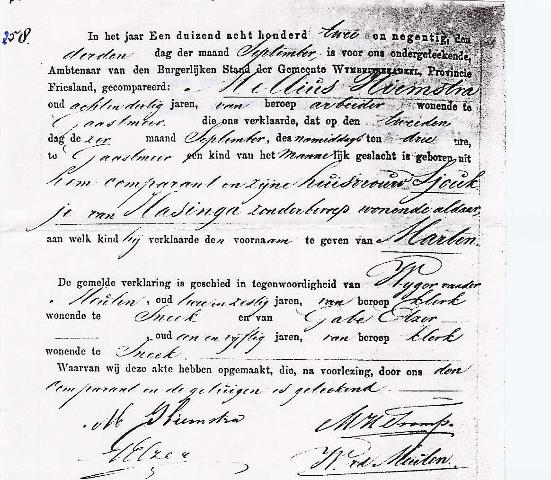 258.
In het jaar Een duizend acht honderd twee en negentig, den
derden dag der maand September, is voor ons ondergeteekende,
Ambtenaar van den Burgerlijken Stand der Gemeente WYMBRITSERADEEL, Provincie
Friesland, gecompareerd: Melliüs Hiemstra
oud achtendertig jaren, van beroep arbeider wonende te
Gaastmeer die ons verklaarde, dat op den tweeden
dag dezer maand September, des namiddags ten drie ure,
te Gaastmeer een kind van het mannelijk geslacht is geboren uit
hem comparant en zijne huisvrouw Sjouk
je van Hasinga zonder beroep wonende aldaar
aan welk kind hij verklaarde den voornaam te geven van Marten.
De gemelde verklaring is geschied in tegenwoordigheid van Wyger van der
Meulen oud twee en zestig jaren, van beroep klerk
wonende te Sneek en van Gabe Elzer
oud een en vijftig jaren, van beroep klerk
wonende te Sneek
Waarvan wij deze akte hebben opgemaakt, die, na voorlezing, door ons den
comparant en de getuigen is geteekend
M Hiemstra
G Elzer
W. v.d. Meulen.